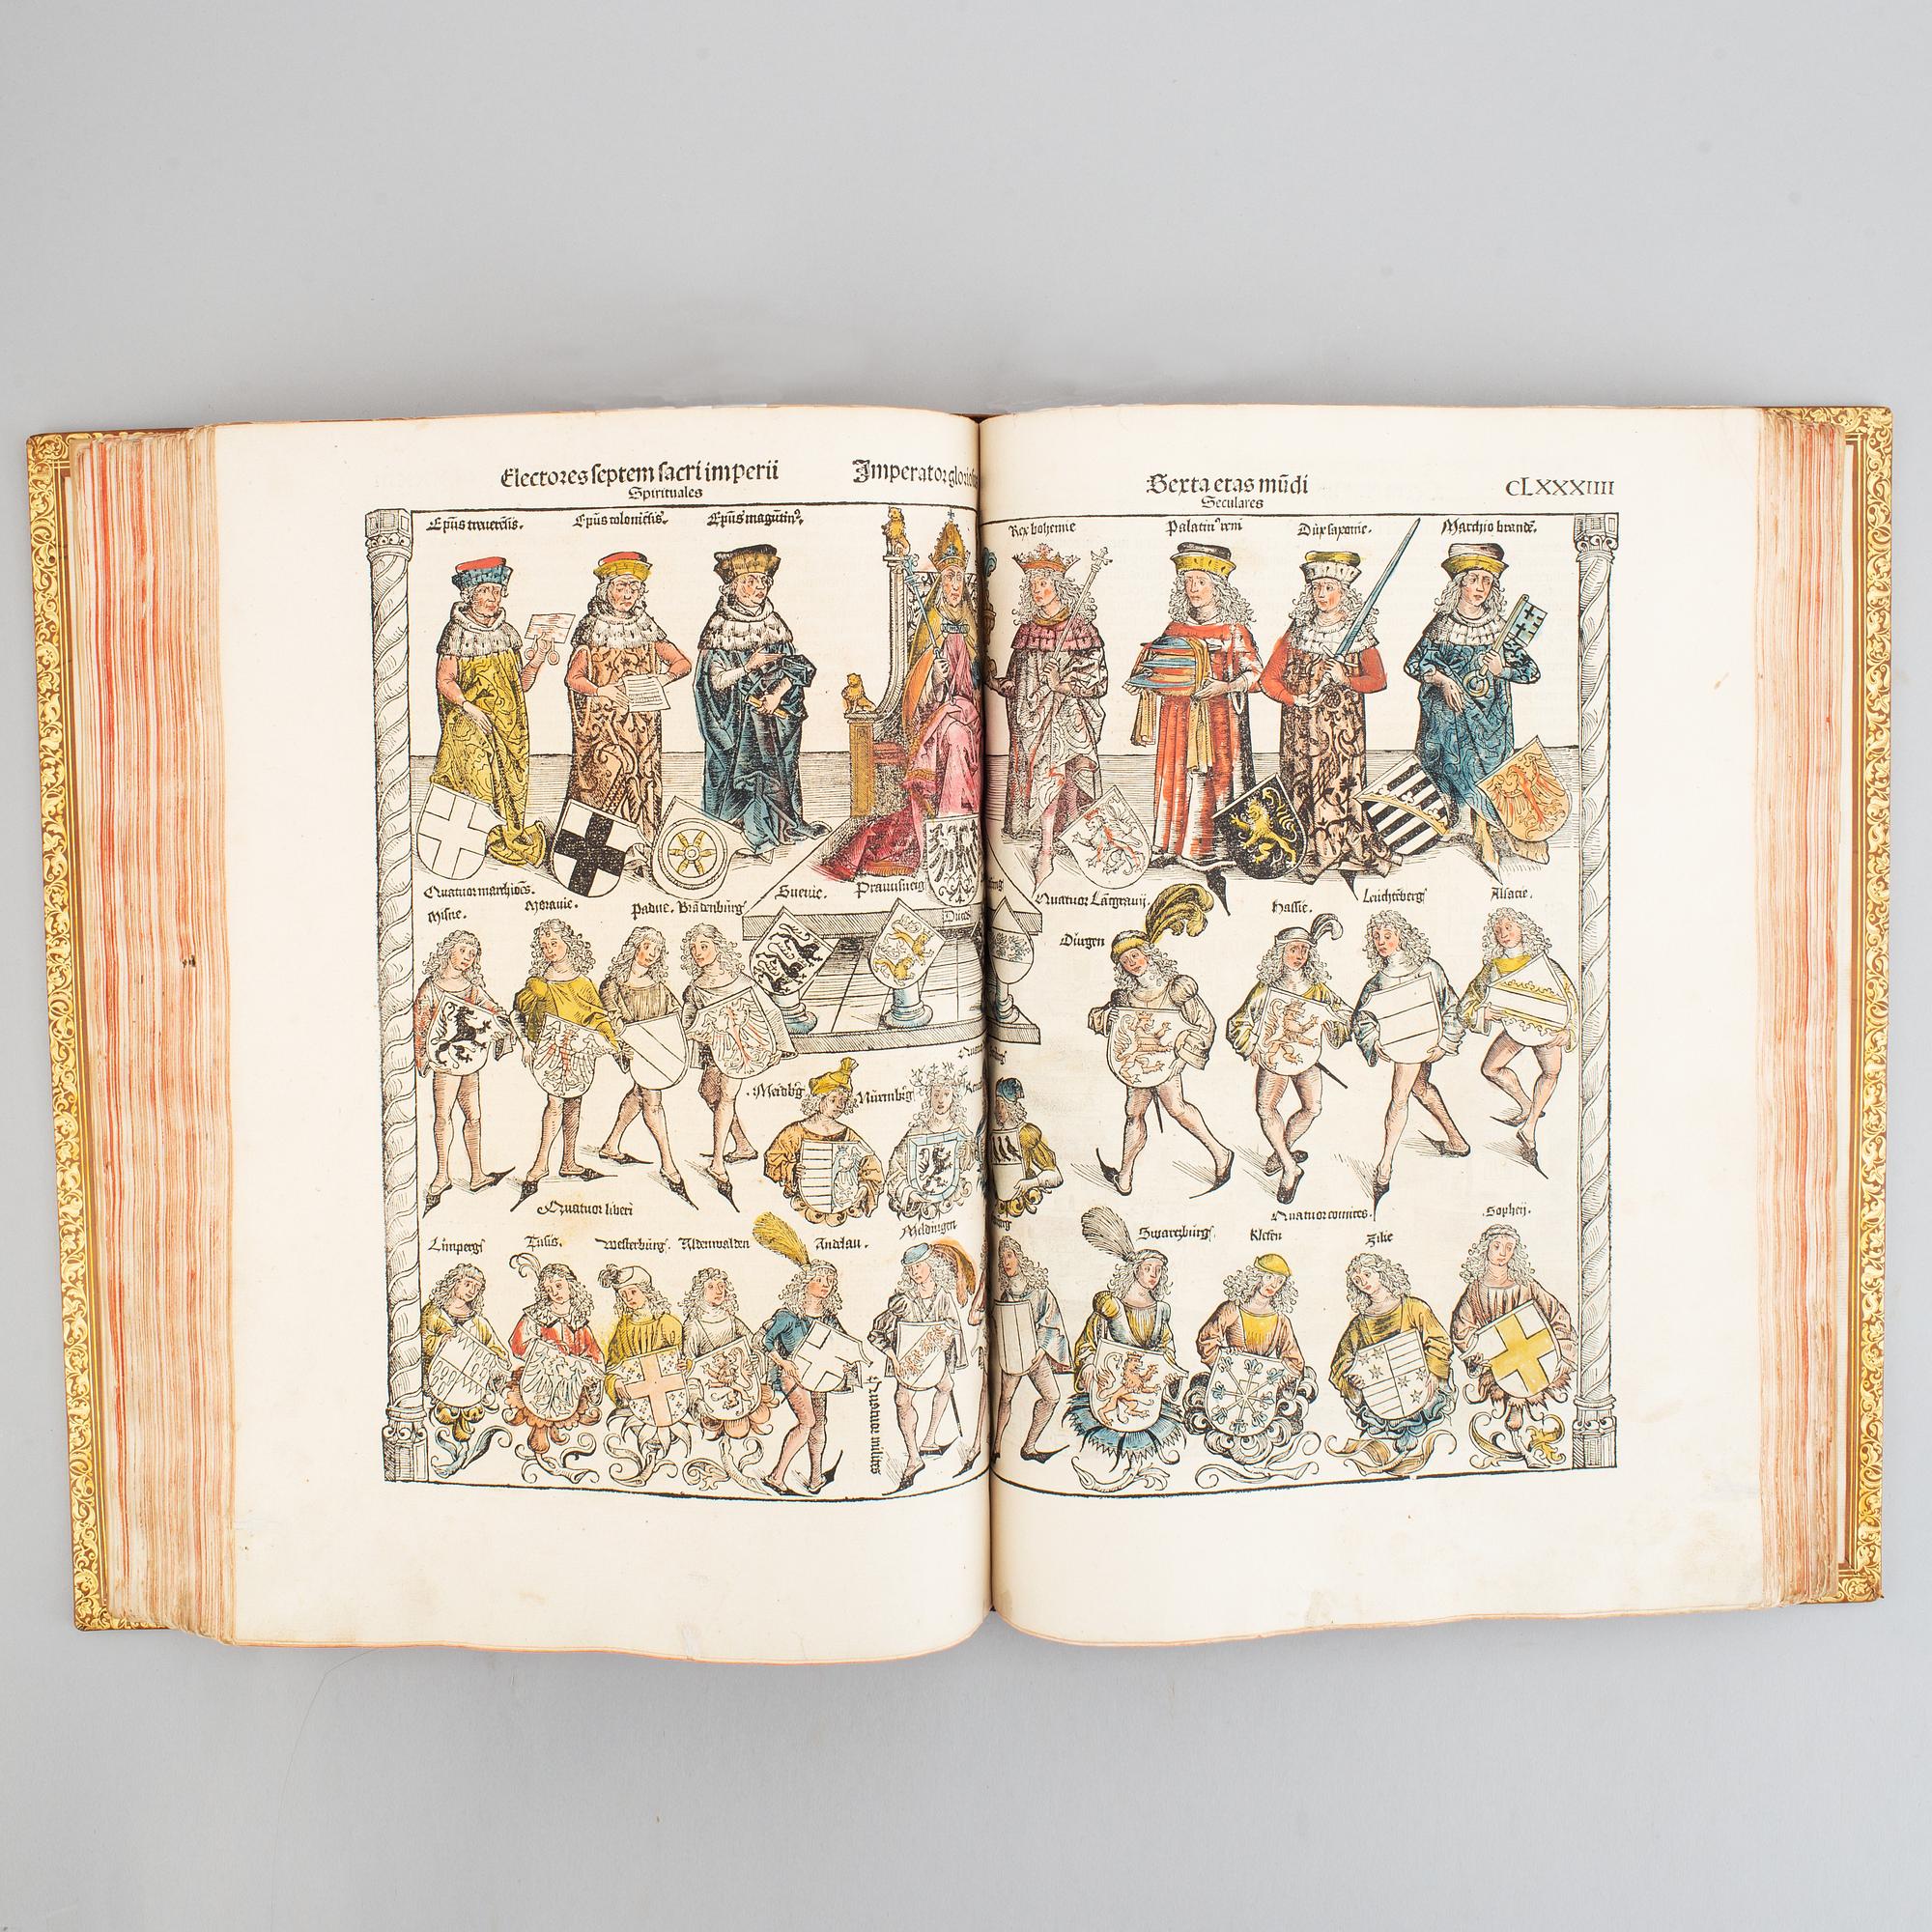 Electores septem sacri imperii
Spirituales
Imperator glorios
Sexta etas mūdi
Seculares
CLXXXIIII
Ep̄us treuerēsis.
Ep̄us coloniēsis.
Ep̄us magūtinꝰ.
Rex bohemie
Palatinꝰ reni
Dux saxonie.
Marchio brandē.
Quatuor marchiões.
Misne.
Morauie.
Padue.
Brādenburg
Sueuie.
Praunsueig
Duces
Quatuor Lātgrauij.
Durgen
Hassie.
Leuchtēberg
Alsacie.
Meidbūg
Nürmbūg
Quatuor liberi
Limperg
Tusis.
Westerburg.
Aldenwalden
Andlau.
Meldingen
Quatuor milites
Quatuor comites.
Swarczburg.
Klefen
Zilie
Sophey.